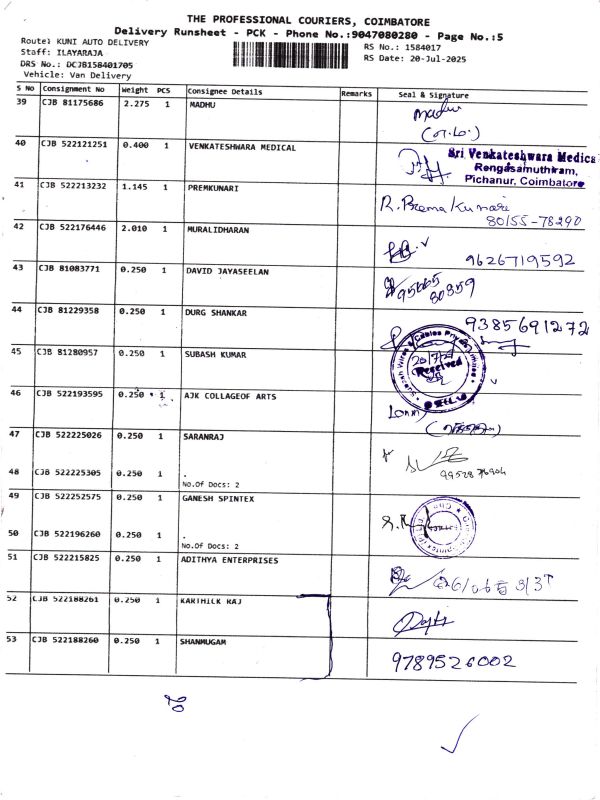 THE PROFESSIONAL COURIERS, COIMBATORE
Delivery Runsheet - PCK - Phone No.:9047080280 - Page No.:5
Route: KUNI AUTO DELIVERY
RS No.: 1584017
Staff: ILAYARAJA
RS Date: 20-Jul-2025
DRS No.: DCJB158401705
Vehicle: Van Delivery
S No Consignment No Weight PCS Consignee Details Remarks Seal & Signature
39 CJB 81175686 2.275 1 MADHU
40 CJB 522121251 0.400 1 VENKATESHWARA MEDICAL
Sri Venkateshwara Medica
Rengasamuthiram,
Pichanur, Coimbatore
41 CJB 522213232 1.145 1 PREMKUNARI
R. Prema Kumari
80155-78290
42 CJB 522176446 2.010 1 MURALIDHARAN
9626719592
43 CJB 81083771 0.250 1 DAVID JAYASEELAN
95665
80359
44 CJB 81229358 0.250 1 DURG SHANKAR
9385691272
45 CJB 81280957 0.250 1 SUBASH KUMAR
Received
46 CJB 522193595 0.250 1 AJK COLLAGEOF ARTS
47 CJB 522225026 0.250 1 SARANRAJ
48 CJB 522225305 0.250 1 .
No.Of Docs: 2
49 CJB 522252575 0.250 1 GANESH SPINTEX
50 CJB 522196260 0.250 1 .
No.Of Docs: 2
51 CJB 522215825 0.250 1 ADITHYA ENTERPRISES
52 CJB 522188261 0.250 1 KARTHICK RAJ
53 CJB 522188260 0.250 1 SHANMUGAM
9789526002